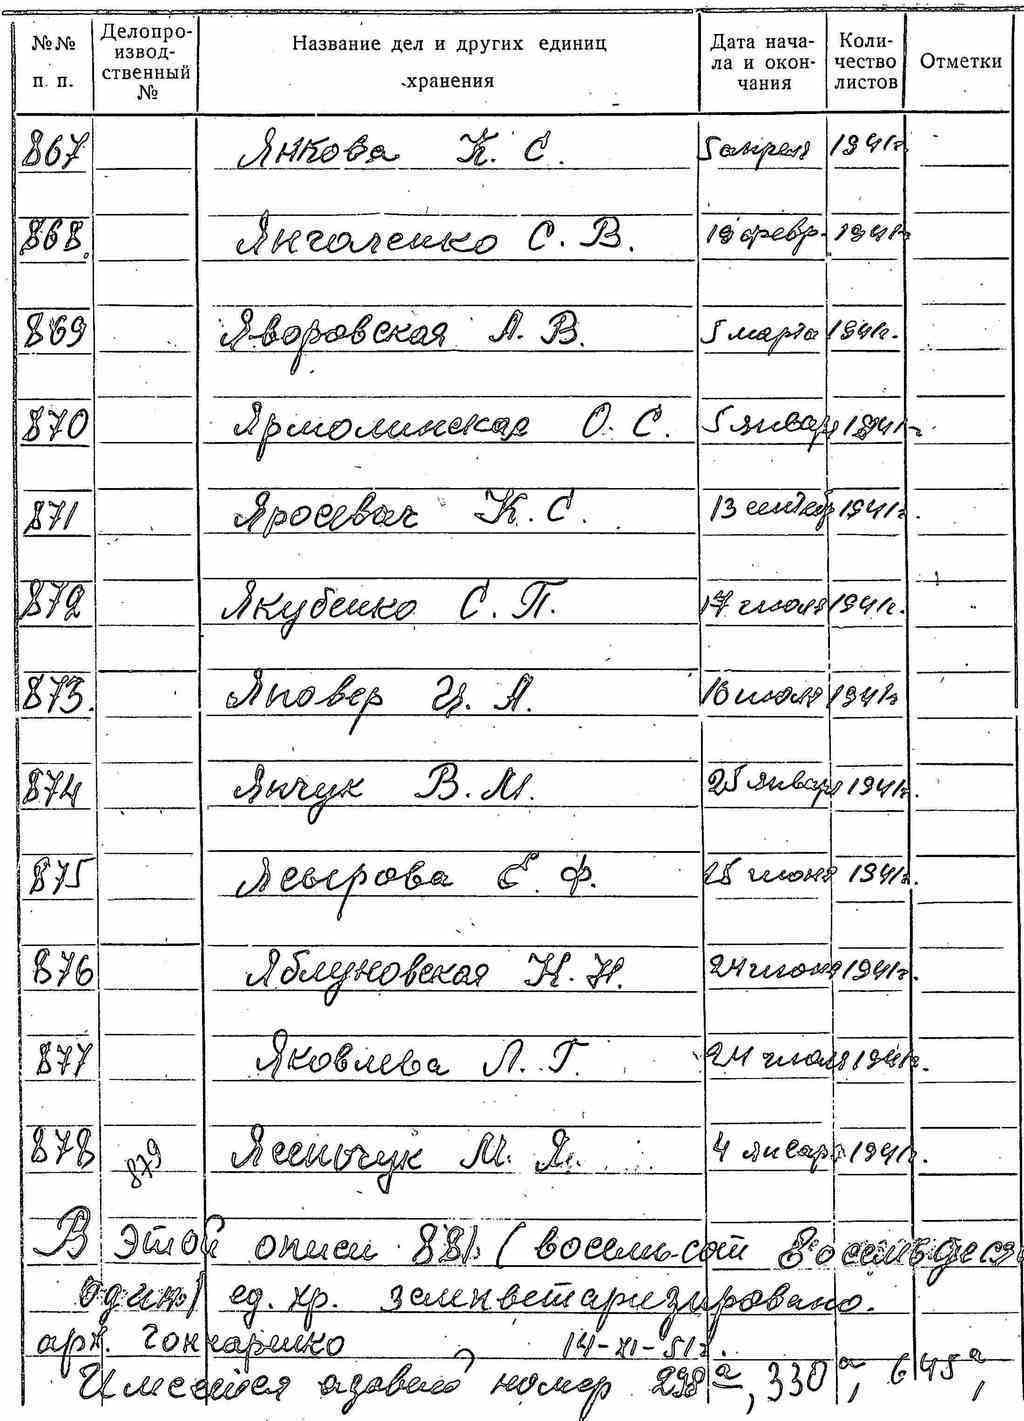 №№ п. п. Делопроизводственный № Название дел и других единиц хранения Дата начала и окончания Количество листов Отметки
867 Янкова К. С. 5 апреля 1941г.
868. Янголенко С. В. 19 февр. 1941г.
869 Яворовская А. В. 5 марта 1941г.
870 Ярмолинская О. С. 5 январ 1941г.
871 К. С. 13 сентяб 1941г.
872 Якубенко С. П. 17 июля 1941г.
873. Яповер А. 16 июля 1941г
874 Янчук В. М. 25 январ 1941г.
875 Ясырова Е. Ф. 25 июня 1941г.
876 Яблуновская Н. Н. 24 июня 1941г.
877 Яковлева Л. Г. 24 июля 1941г.
878 879 М. Я. 4 январ 1941г.
В этой описи 881 (восемьсот восемьдеся
один) ед. хр.
арх. Гончаренко 14-XI-51г.
Имеется номер 298а, 330а, 645а,